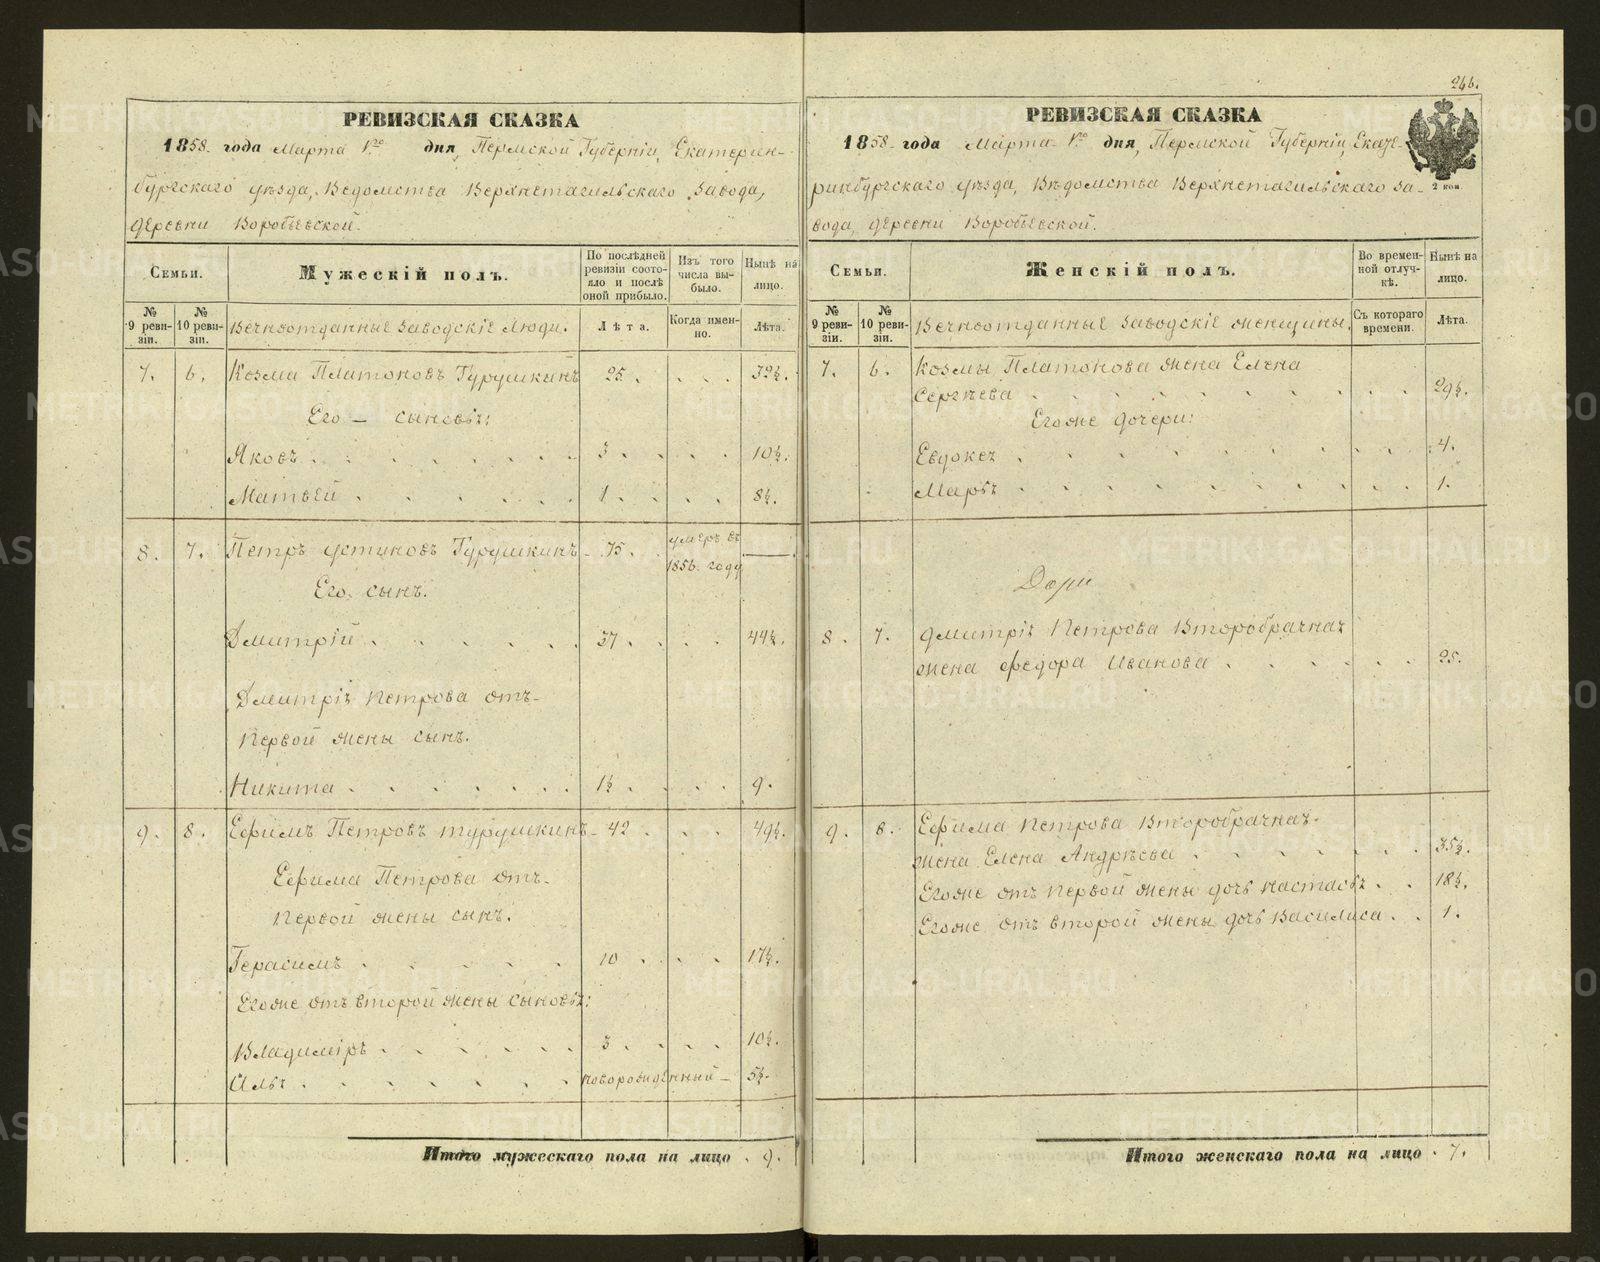 246.
РЕВИЗСКАЯ СКАЗКА
1858 года Марта 1го дня, Пермской Губернiи, Екатерин-
бургскаго уѣзда, Ведомства Верхнетагильскаго завода,
деревни Воробьевской.
Семьи.
Мужескiй полъ.
По послѣдней ревизiи состояло и послѣ оной прибыло.
Изъ того числа выбыло.
Нынѣ на лицо.
№ 9 ревизiи.
№ 10 ревизiи.
Вечноотданные заводскiе люди.
Лѣта.
Когда именно.
Лѣта.
7. 6. Козма Платоновъ Турушкинъ 25. 32½.
Его – сыновья:
Яковъ 3 10½.
Матвей 1 8½.
8. 7. Петръ Устиновъ Турушкинъ 75. умеръ въ 1856 году —
Его сынъ.
Дмитрiй 37 44½.
Дмитрiя Петрова отъ
первой жены сынъ.
Никита 1½ 9.
9. 8. Ефимъ Петровъ Турушкинъ 42 49½.
Ефима Петрова отъ
первой жены сынъ.
Герасимъ 10 17½.
Егоже отъ второй жены сыновья:
Владимiръ 3 10½.
Илья новорожденный – 5½.
Итого мужескаго пола на лицо 9.
РЕВИЗСКАЯ СКАЗКА
1858 года Марта 1го дня, Пермской Губернiи, Екате-
ринбургскаго уѣзда, Вѣдомства Верхнетагильскаго за-
вода, деревни Воробьевской.
2 коп.
Семьи.
Женскiй полъ.
Во временной отлучкѣ.
Нынѣ на лицо.
№ 9 ревизiи.
№ 10 ревизiи.
Вечноотданные заводскiе женщины.
Съ котораго времени.
Лѣта.
7. 6. Козмы Платонова жена Елена
Сергѣева 29½.
Егоже дочери:
Евдокея 4.
Марья 1.
8. 7. Дмитрiя Петрова второбрачная
жена Федора Иванова 25.
9. 8. Ефима Петрова второбрачная
жена Елена Андрѣева 35½.
Егоже отъ первой жены дочь Настасья 18½.
Егоже отъ второй жены дочь Василиса 1.
Итого женскаго пола на лицо 7.
METRIKI.GASO-URAL.RU